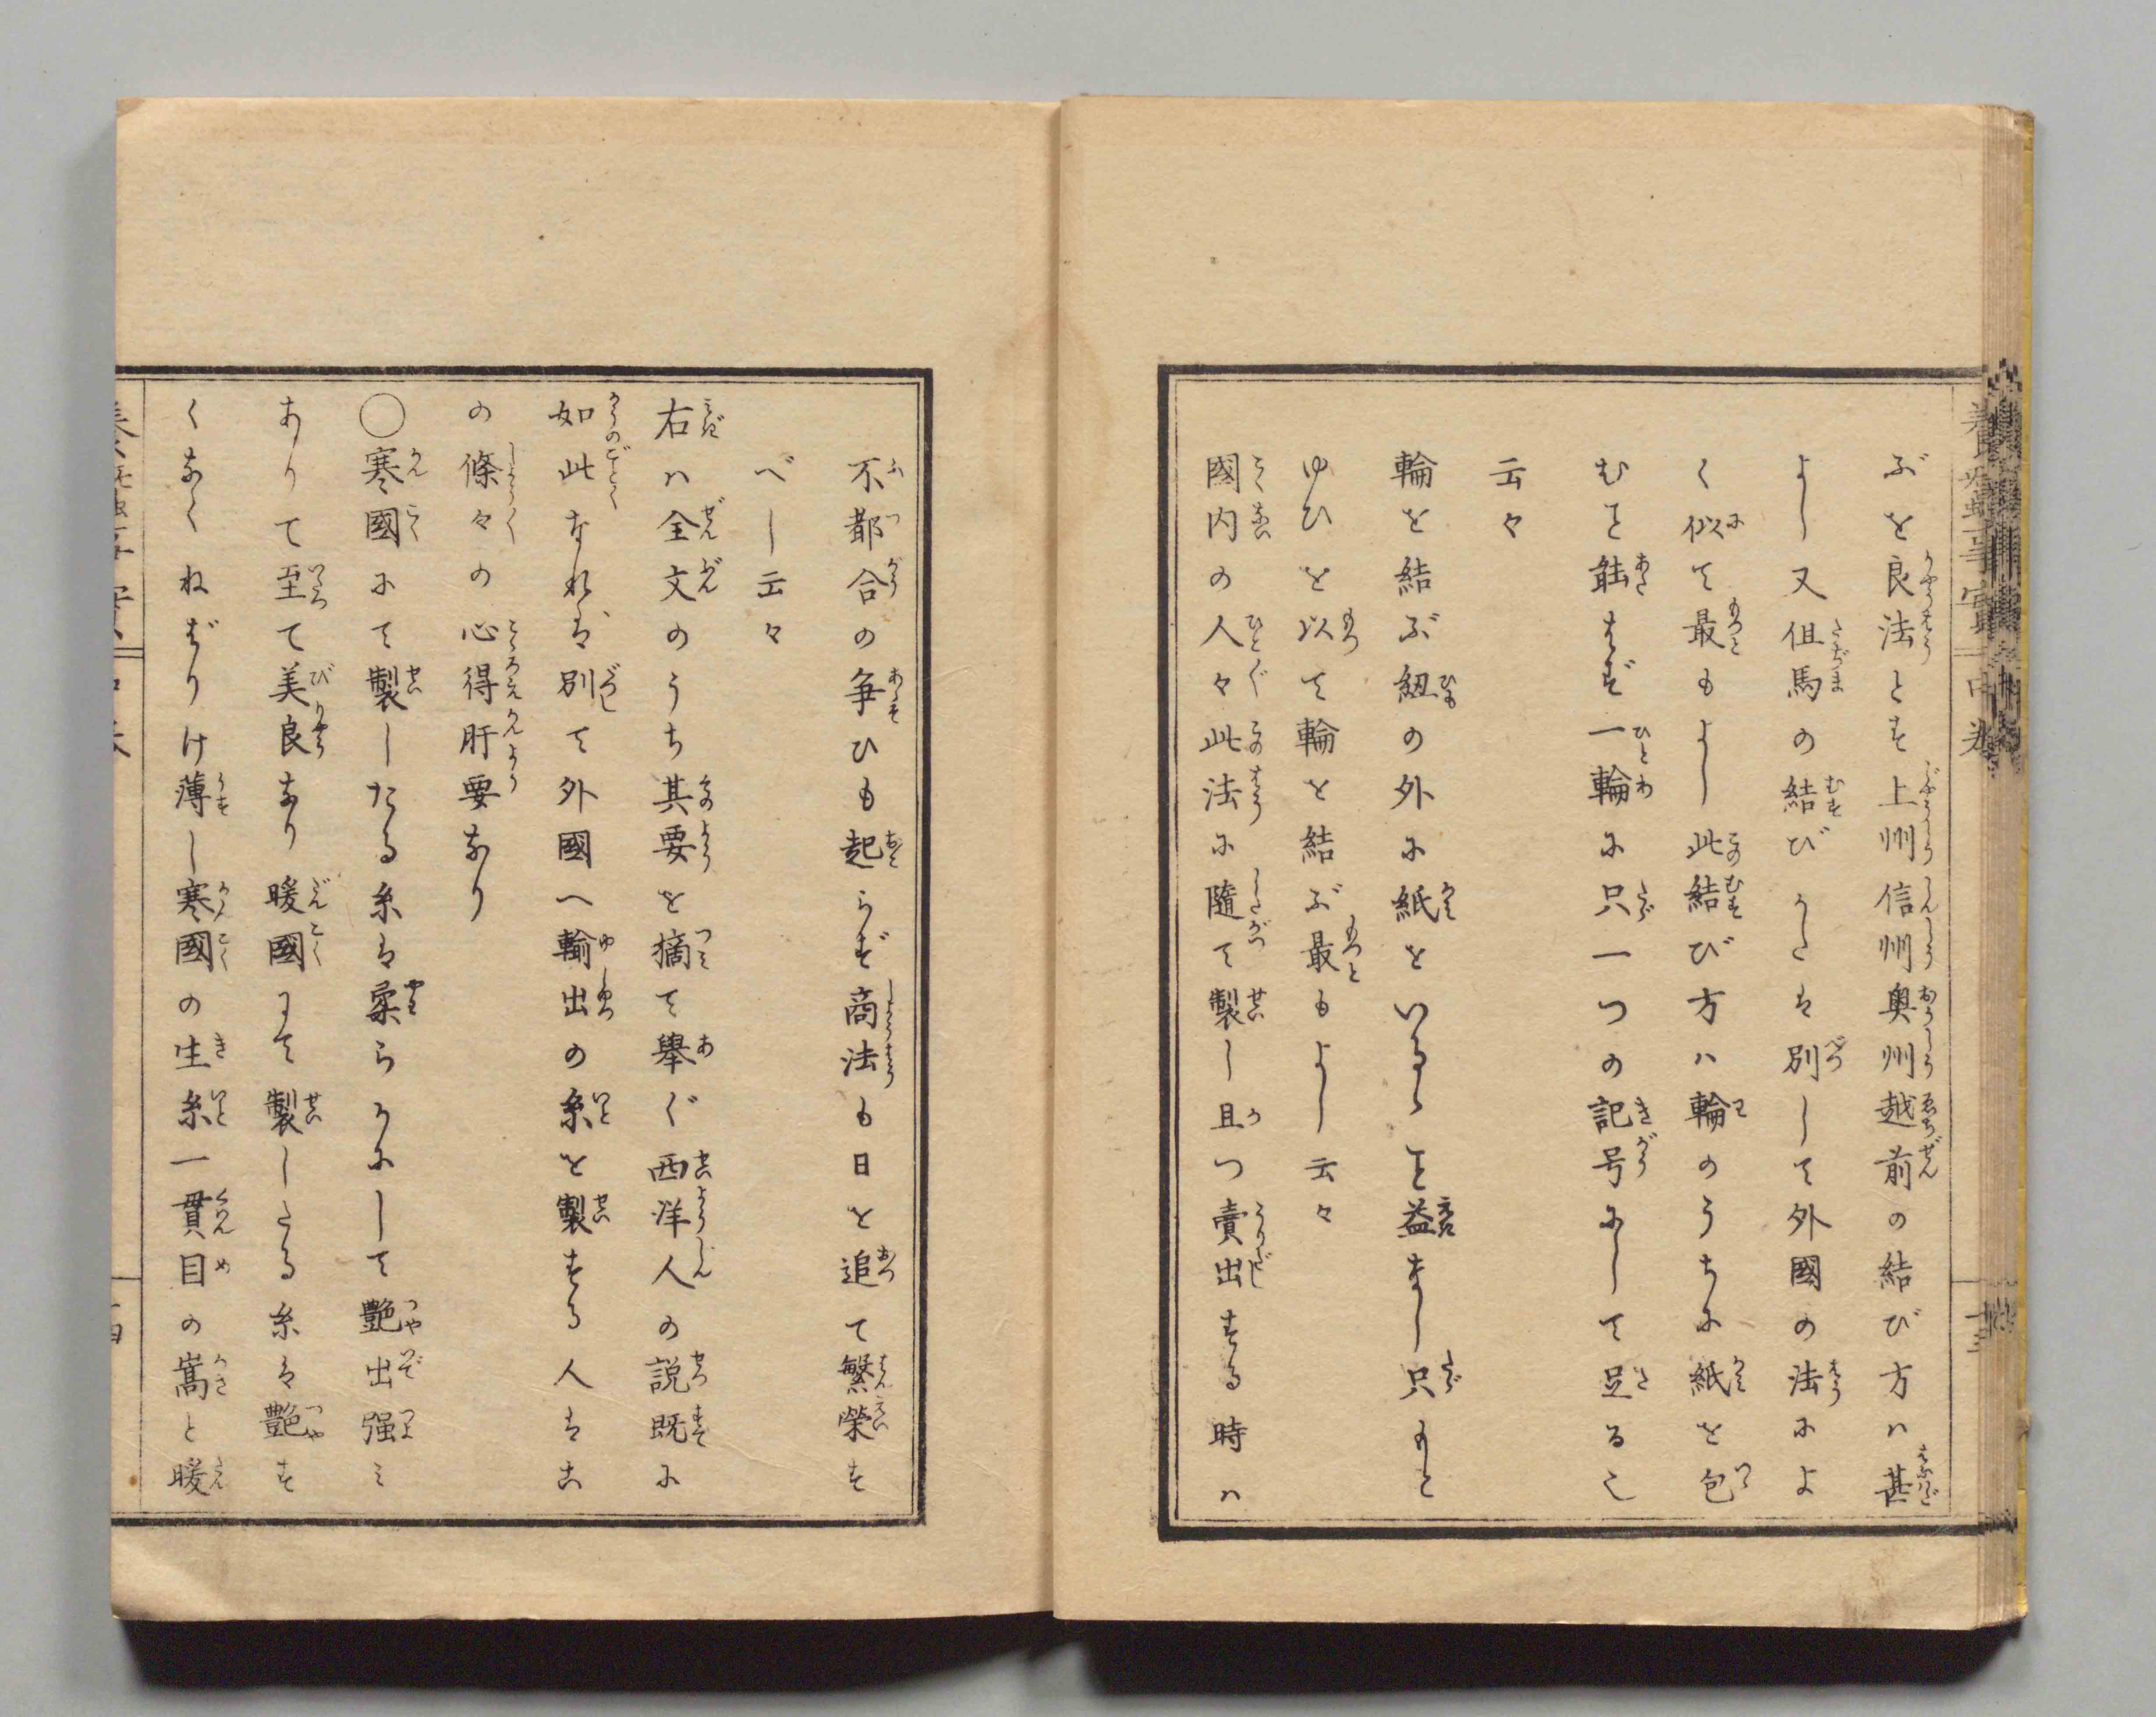 ぶを良法とす上州信州奥州越前の結び方ハ甚
よし又但馬の結びかたは別して外國の法によ
く似て最もよし此結び方ハ輪のうちに紙を包
むを能はず一輪に只一つの記号にして足るし
云々
輪を結ぶ紐の外に紙をいるゝを益なし只もと
ゆひを以て輪を結ぶ最もよし云々
國内の人々此法に隨て製し且つ賣出する時ハ
不都合の争ひも起らず商法も日を追て繁榮す
べし云々
右ハ全文のうち其要を摘て舉ぐ西洋人の説既に
如此なれば別て外國へ輸出の糸を製する人はこ
の條々の心得肝要なり
〇寒國にて製したる糸は柔らかにして艶出强み
ありて至て美良なり暖國にて製したる糸は艶す
くなくねばりけ薄し寒國の生糸一貫目の嵩と暖